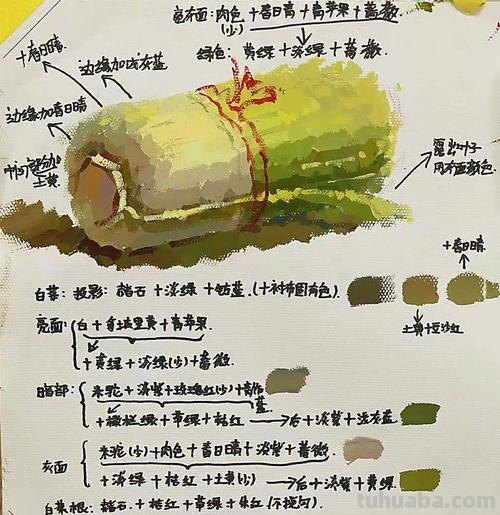 亮布面：肉色＋春日青＋青苹果＋蔷薇.
(少)
绿色：黄绿＋淡绿＋蔷薇.
＋春日晴.
边缘加浅灰蓝
边缘加春日晴
中间部分加
土黄
露出叶子
同布面颜色.
＋春日晴
白菜：投影：赭石＋淡绿＋钴蓝.(＋衬布固有色).
土黄＋豆沙红
亮面：白＋拿坡里黄＋青苹果.
＋黄绿＋淡绿(少)＋蔷薇.
暗部：朱驼＋淡紫＋玫瑰红(少)＋青竹
蓝
＋橄榄绿＋草绿＋桔红→后＋淡紫＋浅灰蓝
灰面 朱驼(少)＋肉色＋春日晴＋淡紫＋蔷薇.
＋淡绿＋桔红＋土黄(少)→后＋淡紫＋黄绿
白菜根：赭石.＋桔红＋草绿＋朱红(不搅匀).
tuhuaba.com